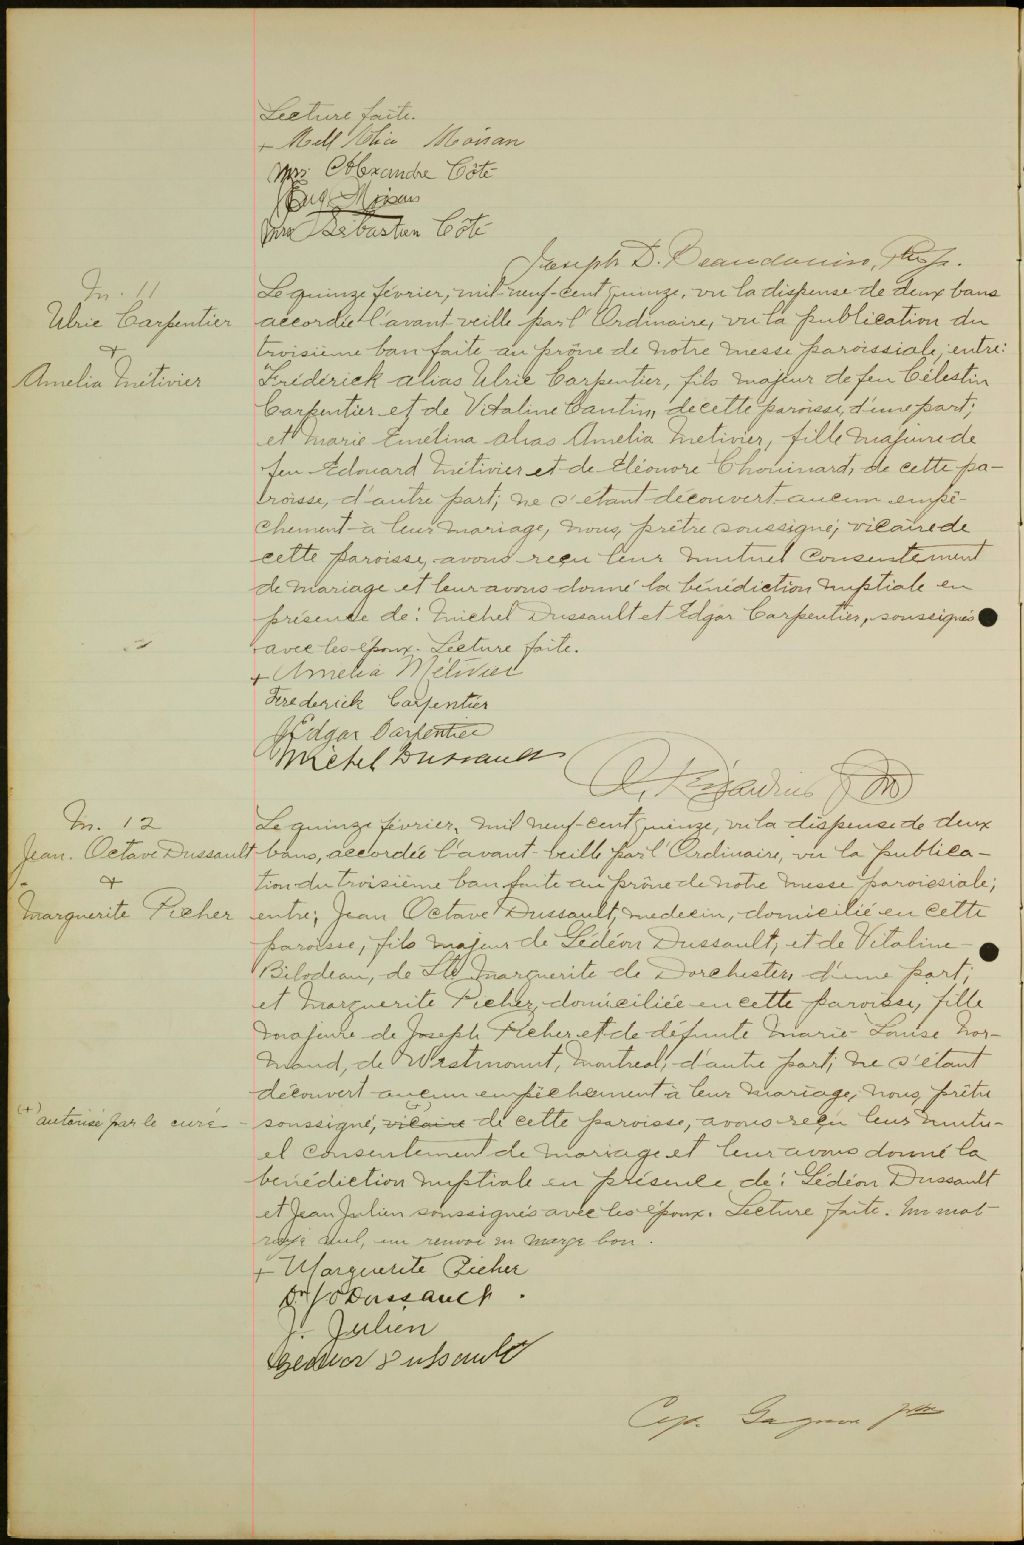 Lecture faite.
+ Mell Moisan
Mrs Alexandre Côté
Eug. Moisan
Mrs Sébastien Côté
Joseph D. Beaudouin, Ptre
M. 11
Ulric Carpentier
+
Amelia Métivier
Le quinze février, mil-neuf-cent quinze, vu la dispense de deux bans
accordée l'avant veille par l'Ordinaire, vu la publication du
troisième ban faite au prône de notre messe paroissiale, entre:
Frédérick alias Ulric Carpentier, fils majeur de feu Célestin
Carpentier et de Vitaline Cantin, de cette paroisse, d'une part;
et Marie Emélina alias Amelia Metivier, fille majeure de
feu Edouard Métivier et de Eléonore Chouinard, de cette pa-
roisse, d'autre part; ne s'étant découvert aucun empê-
chement à leur mariage, nous, prêtre soussigné, vicaire de
cette paroisse, avons reçu leur mutuel consentement
de mariage et leur avons donné la bénédiction nuptiale en
présence de: Michel Dussault et Edgar Carpentier, soussignés
avec les époux. Lecture faite.
+ Amelia Métivier
Frederick Carpentier
Edgar Carpentier
Michel Dussault
M. 12
Jean. Octave Dussault
+
Marguerite Picher
Le quinze février, mil neuf-cent quinze, vu la dispense de deux
bans, accordée l'avant-veille par l'Ordinaire, vu la publica-
tion du troisième ban faite au prône de notre messe paroissiale;
entre; Jean Octave Dussault, medecin, domicilié en cette
paroisse, fils majeur de Gédéon Dussault, et de Vitaline
Bilodeau, de Ste Marguerite de Dorchester, d'une part;
et Marguerite Picher, domiciliée en cette paroisse, fille
majeure de Joseph Picher et de défunte Marie-Louise Nor-
mand, de Westmount, Montreal, d'autre part; ne s'étant
découvert aucun empêchement à leur mariage, nous, prêtre
(+) autorisé par le curé
soussigné, vicaire (+) de cette paroisse, avons reçu leur mutu-
el consentement de mariage et leur avons donné la
bénédiction nuptiale en présence de: Gédéon Dussault
et Jean Julien soussignés avec les époux. Lecture faite. Un mot
rayé nul, un renvoi en marge bon.
+ Marguerite Picher
Dr J O Dussault.
J. Julien
Gédéon Dussault
Cyp. Gagnon ptre